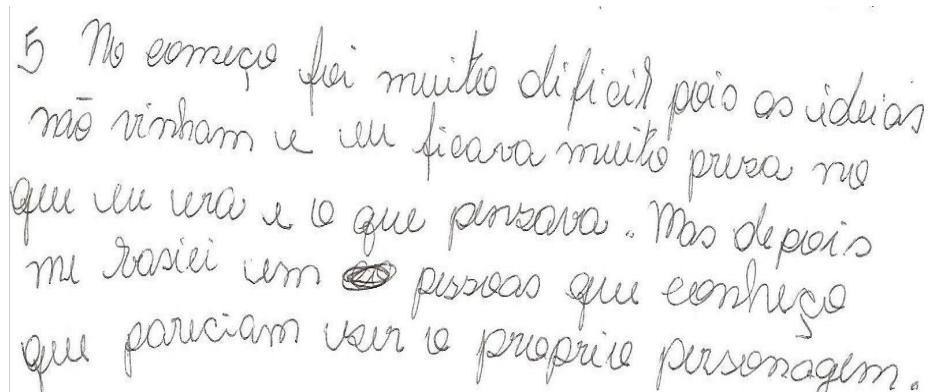 5 No começo foi muito dificil pois as ideias
não vinham e eu ficava muito presa no
que eu era e o que pensava. Mas depois
me basiei em pessoas que conheço
que pareciam ser o proprio personagem.